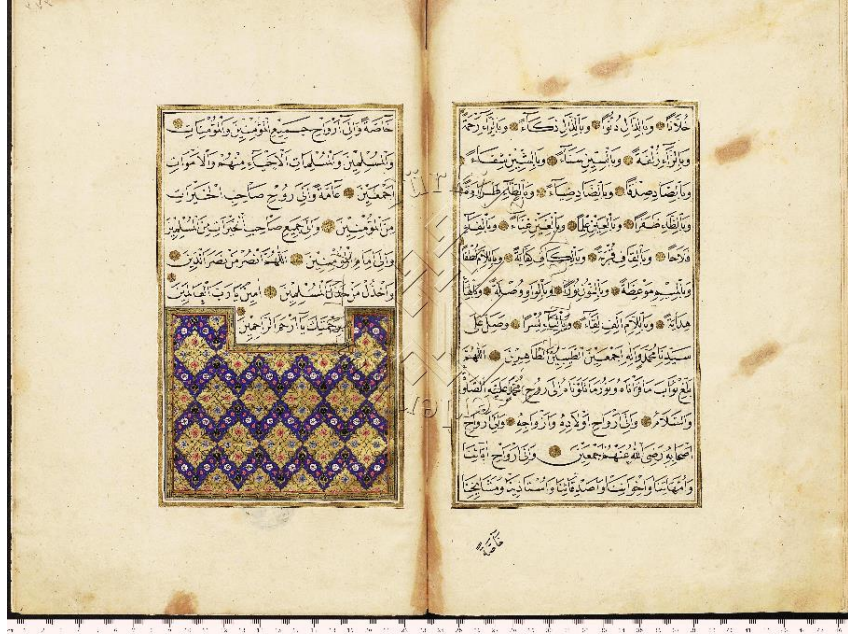 حَلَاوَةً وَبِالدَّالِ دُنُوًّا وَبِالذَّالِ ذَكَاءً وَبِالرَّاءِ رَحْمَةً
وَبِالزَّاءِ زُلْفَةً وَبِالسِّينِ سَنَاءً وَبِالشِّينِ شِفَاءً
وَبِالصَّادِ صِدْقًا وَبِالضَّادِ ضِيَاءً وَبِالطَّاءِ طَرَاوَةً
وَبِالظَّاءِ ظَفَرًا وَبِالْعَيْنِ عِلْمًا وَبِالْغَيْنِ غِنَاءً وَبِالْفَاءِ
فَلَاحًا وَبِالْقَافِ قُرْبَةً وَبِالْكَافِ كِفَايَةً وَبِاللَّامِ لُطْفًا
وَبِالْمِيمِ مَوْعِظَةً وَبِالنُّونِ نُورًا وَبِالْوَاوِ وُصْلَةً وَبِالْهَاءِ
هِدَايَةً وَبِاللَّامِ اَلِفِ لِقَاءً وَبِالْيَاءِ يُسْرًا وَصَلِّ عَلَى
سَيِّدِنَا مُحَمَّدٍ وَاٰلِهِ اَجْمَعِينَ الطَّيِّبِينَ الطَّاهِرِينَ اَللّٰهُمَّ
بَلِّغْ ثَوَابَ مَا قَرَأْنَاهُ وَنُورَ مَا تَلَوْنَاهُ اِلَى رُوحِ مُحَمَّدٍ عَلَيْهِ الصَّلٰوةُ
وَالسَّلَامُ وَاِلَى اَرْوَاحِ اَوْلَادِهِ وَاَزْوَاجِهِ وَاِلَى اَرْوَاحِ
اَصْحَابِهِ رَضِيَ اللّٰهُ عَنْهُمْ اَجْمَعِينَ وَاِلَى اَرْوَاحِ اٰبَائِنَا
وَاُمَّهَاتِنَا وَاَخَوَاتِنَا وَاَصْدِقَائِنَا وَاُسْتَاذِينَا وَمَشَايِخِنَا
خَاصَّةً
خَاصَّةً وَاِلَى اَرْوَاحِ جَمِيعِ الْمُؤْمِنِينَ وَالْمُؤْمِنَاتِ
وَالْمُسْلِمِينَ وَالْمُسْلِمَاتِ اَلْاَحْيَاءِ مِنْهُمْ وَالْاَمْوَاتِ
اَجْمَعِينَ عَامَّةً وَاِلَى رُوحِ صَاحِبِ الْخَيْرَاتِ
مِنَ الْمُؤْمِنِينَ وَاِلَى جَمِيعِ صَاحِبِ الْخَيْرَاتِ مِنَ الْمُسْلِمِينَ
وَاِلَى اِمَامِ الْمُؤْمِنِينَ اَللّٰهُمَّ انْصُرْ مَنْ نَصَرَ الدِّينَ
وَاخْذُلْ مَنْ خَذَلَ الْمُسْلِمِينَ اٰمِينَ يَا رَبَّ الْعَالَمِينَ
بِرَحْمَتِكَ يَا اَرْحَمَ الرَّاحِمِينَ